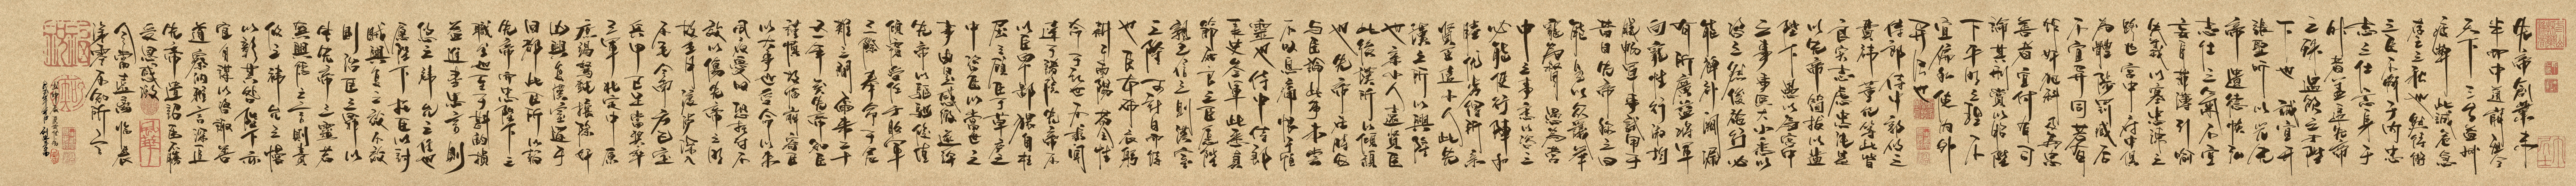 先帝創業未
半而中道崩殂今
天下三分益州
疲弊此誠危急
存亡之秋也然侍衛
之臣不懈于內忠
志之士忘身于
外者蓋追先帝
之殊遇欲報之于陛
下也誠宜開
張聖聽以光先
帝遺德恢弘
志士之氣不宜
妄自菲薄引喻
失義以塞忠諫之
路也宮中府中俱
為一體陟罰臧否
不宜異同若有
作奸犯科及為忠
善者宜付有司
論其刑賞以昭陛
下平明之理不
宜偏私使內外
異法也
侍中侍郎郭攸之
費禕董允等此皆
良實志慮忠純是
以先帝簡拔以遺
陛下愚以為宮中
之事事無大小悉以
咨之然後施行必
能裨補闕漏
有所廣益將軍
向寵性行淑均
曉暢軍事試用于
昔日先帝稱之曰
能是以眾議舉
寵為督愚以為營
中之事悉以咨之
必能使行陣和
睦優劣得所親
賢臣遠小人此先
漢之所以興隆
也親小人遠賢臣
此後漢所以傾頹
也先帝在時每
與臣論此事未嘗
不嘆息痛恨于桓
靈也侍中尚書
長史參軍此悉貞
節死之臣願陛
親之信之則漢室
之隆可計日而待
也臣本布衣躬
耕于南陽苟全性
命于亂世不求聞
達于諸侯先帝不
以臣卑鄙猥自枉
屈三顧臣于草廬之
中咨臣以當世之
事由是感激遂許
先帝以驅馳後值
傾覆受任于敗軍
之際奉命于危
難之間爾來二十
有一年矣先帝知臣
謹慎故臨崩寄臣
以大事也受命以來
夙夜憂嘆恐付不
效以傷先帝之明
故五月渡瀘深入
不毛今南方已定
兵甲已足當獎率
三軍北定中原
庶竭駑鈍攘除奸
凶興復漢室還于
舊都此臣所以報
先帝而忠陛下之
職分也至于斟酌損
益進盡忠言則
攸之禕允之任也
願陛下托臣以討
賊興復之效不效
則治臣之罪以
告先帝之靈若
無興德之言則責
攸之禕允之慢
以彰其咎陛下亦
宜自謀以咨諏善
道察納雅言深追
先帝遺詔臣不勝
受恩感激
今當遠離臨表
涕零不知所言